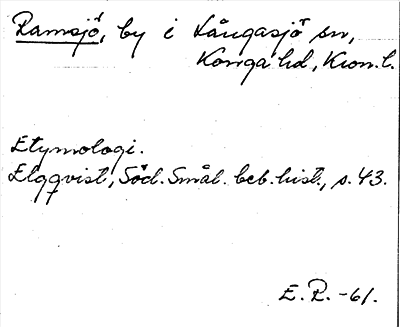 Ramsjö, by i Långasjö sn,
Konga hd, Kron.l.
Etymologi.
Elqqvist, Söd. Smål. beb. hist., s. 43.
E. R. -61.